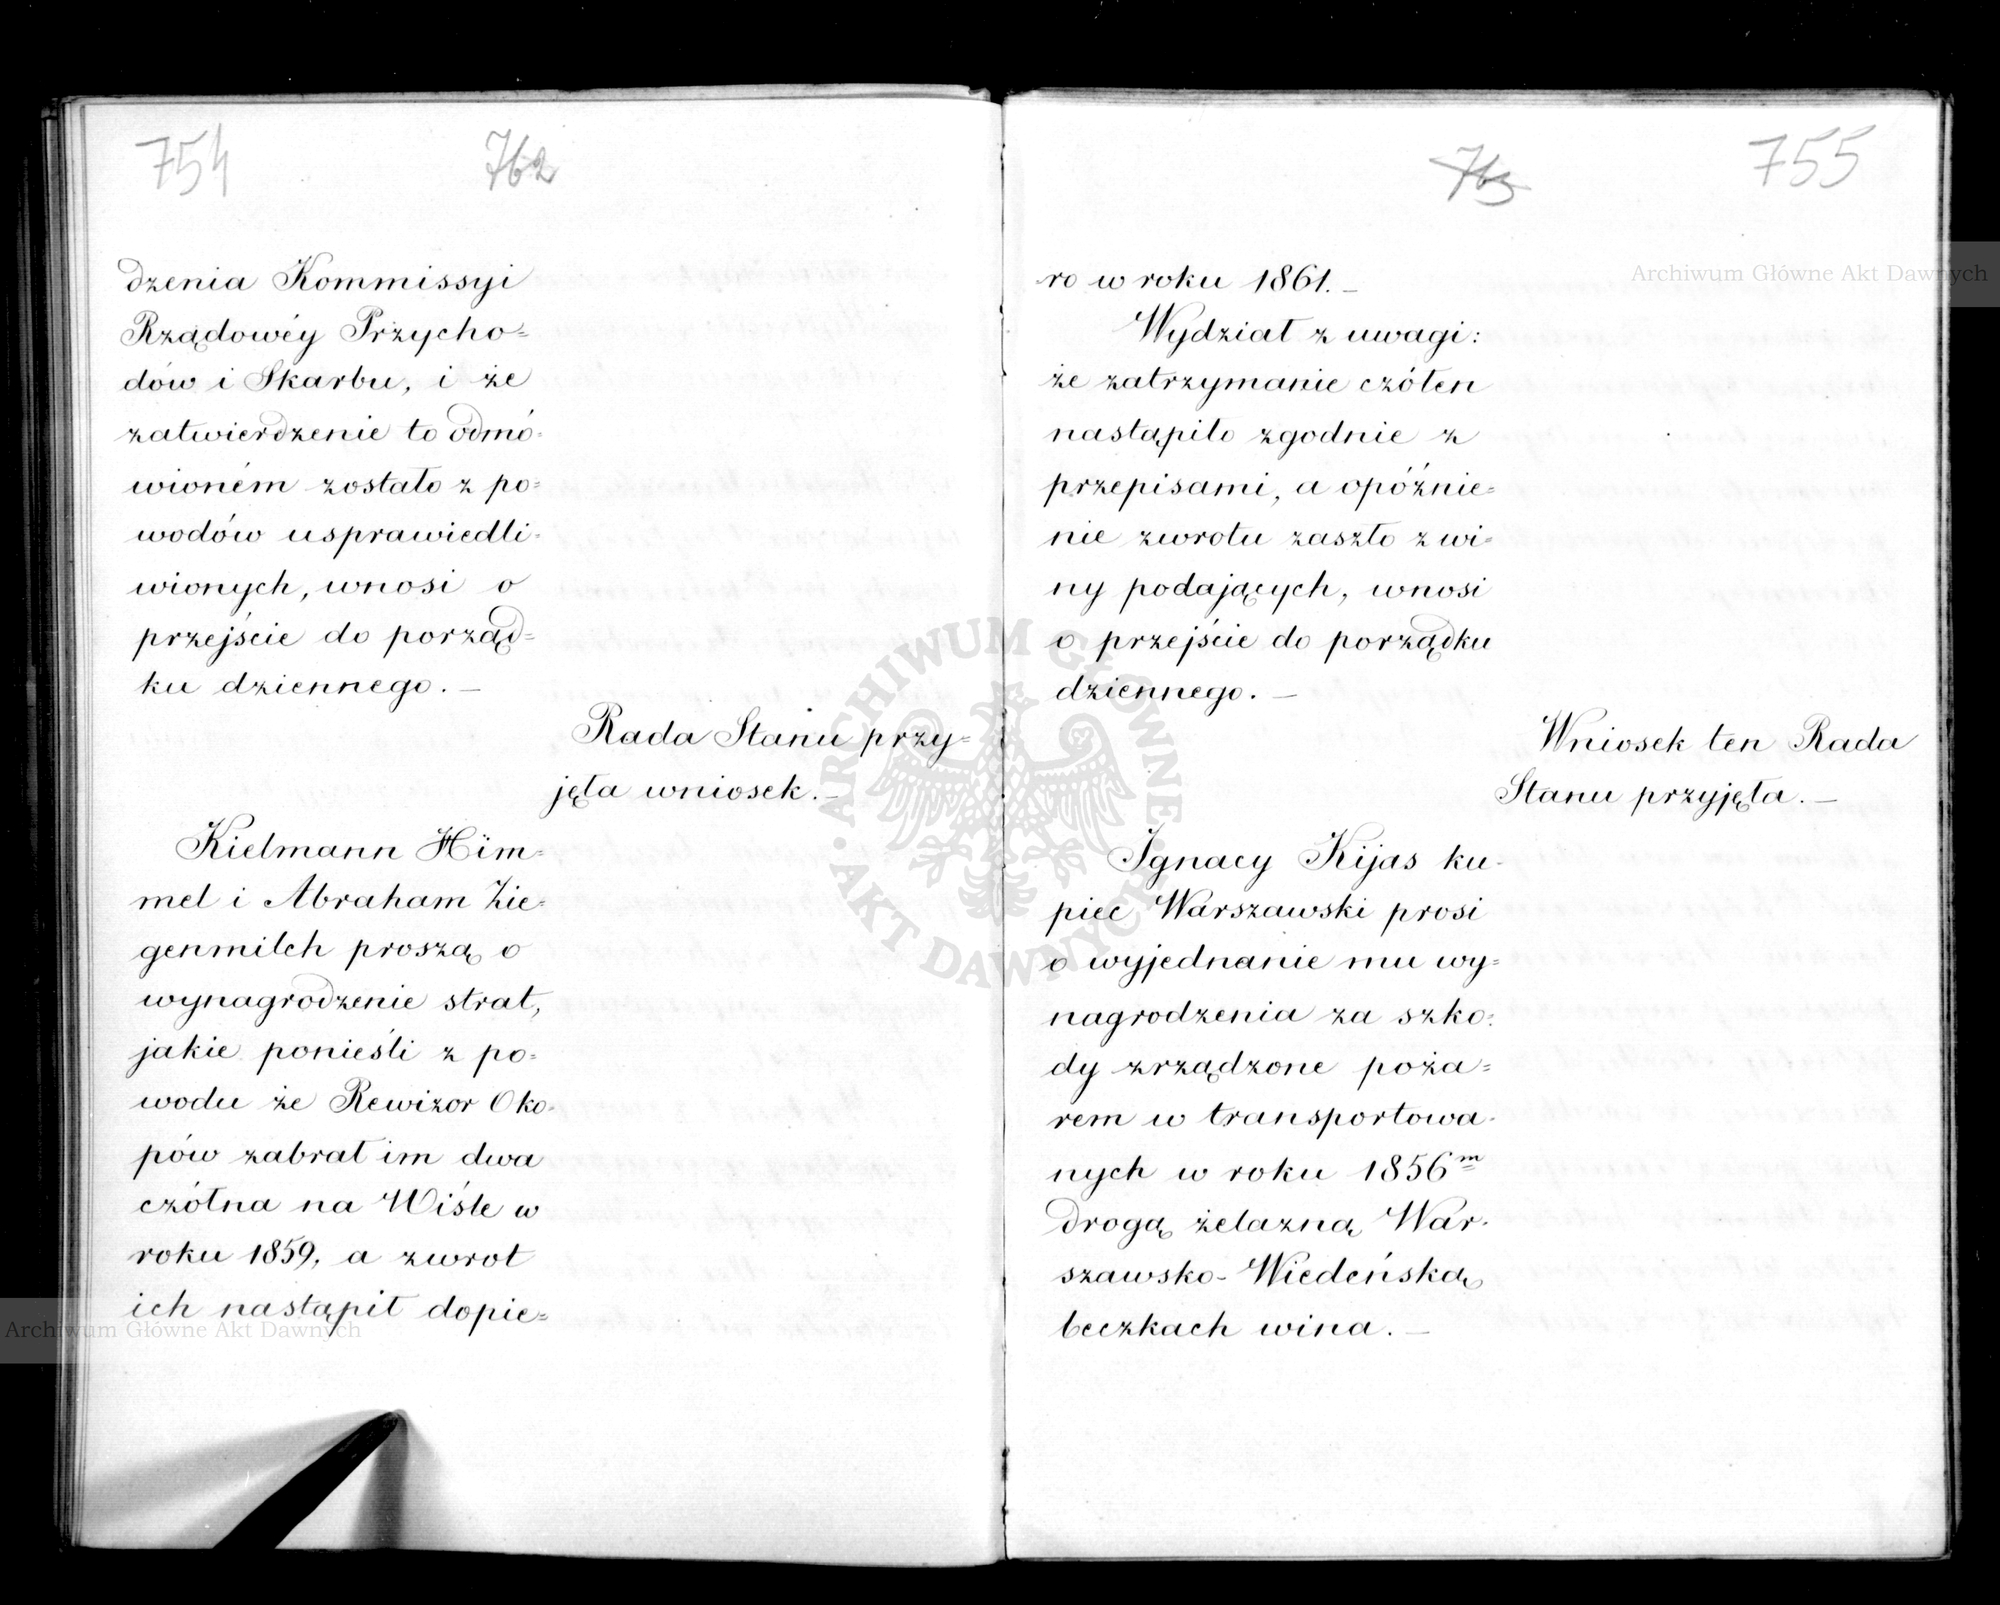 754
762
dzenia Kommissyi
Rządowéy Przycho=
dów i Skarbu, i że
zatwierdzenie to odmó=
wioném zostało z po=
wodów usprawiedli=
wionych, wnosi o
przejście do porząd=
ku dziennego. —
Rada Stanu przy=
jęła wniosek. —
Kielmann Him=
mel i Abraham Zie=
genmilch proszą o
wynagrodzenie strat,
jakie ponieśli z po=
wodu że Rewizor Oko=
pów zabrał im dwa
czółna na Wiśle w
roku 1859, a zwrot
ich nastąpił dopie=
763
755
ro w roku 1861. —
Wydział z uwagi:
że zatrzymanie czółen
nastąpiło zgodnie z
przepisami, a opóźnie=
nie zwrotu zaszło z wi=
ny podających, wnosi
o przejście do porządku
dziennego. —
Wniosek ten Rada
Stanu przyjęła. —
Ignacy Kijas ku=
piec Warszawski prosi
o wyjednanie mu wy=
nagrodzenia za szko=
dy zrządzone poża=
rem w transportowa=
nych w roku 1856m
drogą żelazną War=
szawsko-Wiedeńską
beczkach wina. —
Archiwum Główne Akt Dawnych
Archiwum Główne Akt Dawnych
ARCHIWUM GŁÓWNE AKT DAWNYCH